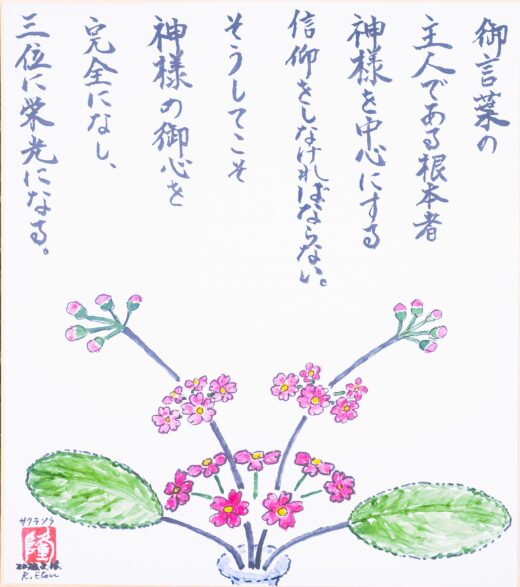 御言葉の
主人である根本者
神様を中心にする
信仰をしなければならない。
そうしてこそ
神様の御心を
完全になし、
三位に栄光になる。
サクラソウ
隆